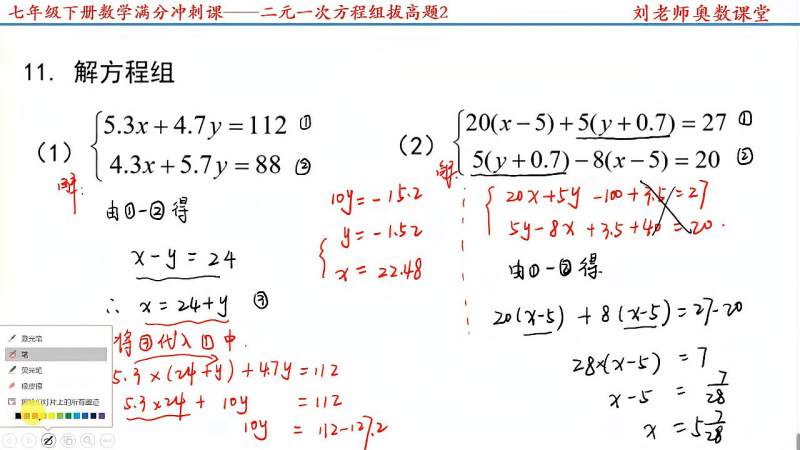 七年级下册数学满分冲刺课——二元一次方程组拔高题2
刘老师奥数课堂
11. 解方程组
(1)
5.3x+4.7y=112 ①
4.3x+5.7y=88 ②
解:
由①-②得
x-y=24
∴ x=24+y ③
将③代入①中.
5.3×(24+y)+4.7y=112
5.3×24+10y=112
10y=112-127.2
10y=-15.2
y=-1.52
x=22.48
(2)
20(x-5)+5(y+0.7)=27 ①
5(y+0.7)-8(x-5)=20 ②
解:
20x+5y-100+3.5=27
5y-8x+3.5+40=20.
由①-②得
20(x-5)+8(x-5)=27-20
28×(x-5)=7
x-5=7/28
x=5 7/28
激光笔
笔
荧光笔
橡皮擦